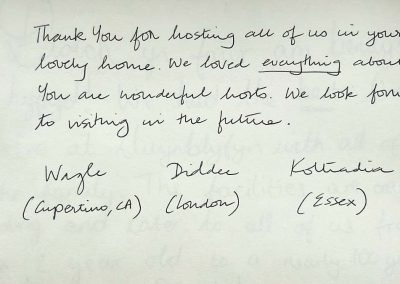 Thank You for hosting all of us in your
lovely home. We loved everything about
You are wonderful hosts. We look for
to visiting in the future.
Wagle Diddee Kothadia
(Cupertino, CA) (London) (Essex)